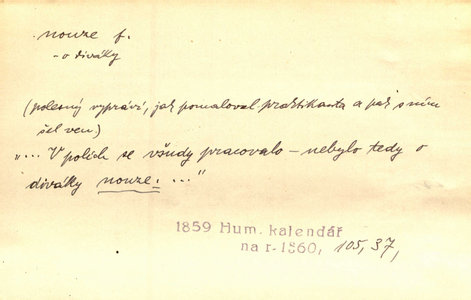 nouze f.
- o diváky
(polesný vypráví, jak pomaloval praktikanta a pak s ním
šel ven)
"... V polích se všudy pracovalo - nebylo tedy o
diváky nouze. ..."
1859 Hum. kalendář
na r. 1860, 105, 37,